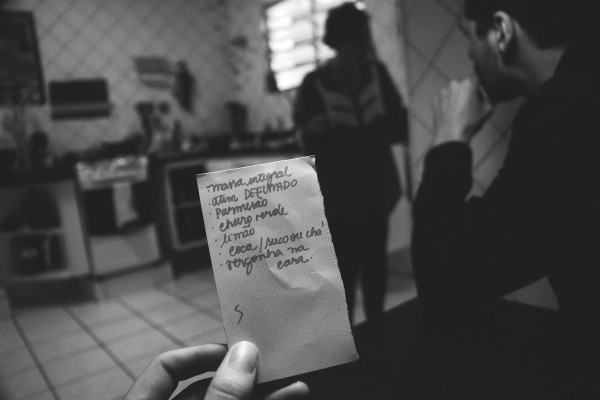 · massa integral
· atum DEFUMADO
· PARMESÃO
· cheiro verde
· limão
· coca / suco ou chá
· vergonha na
cara.